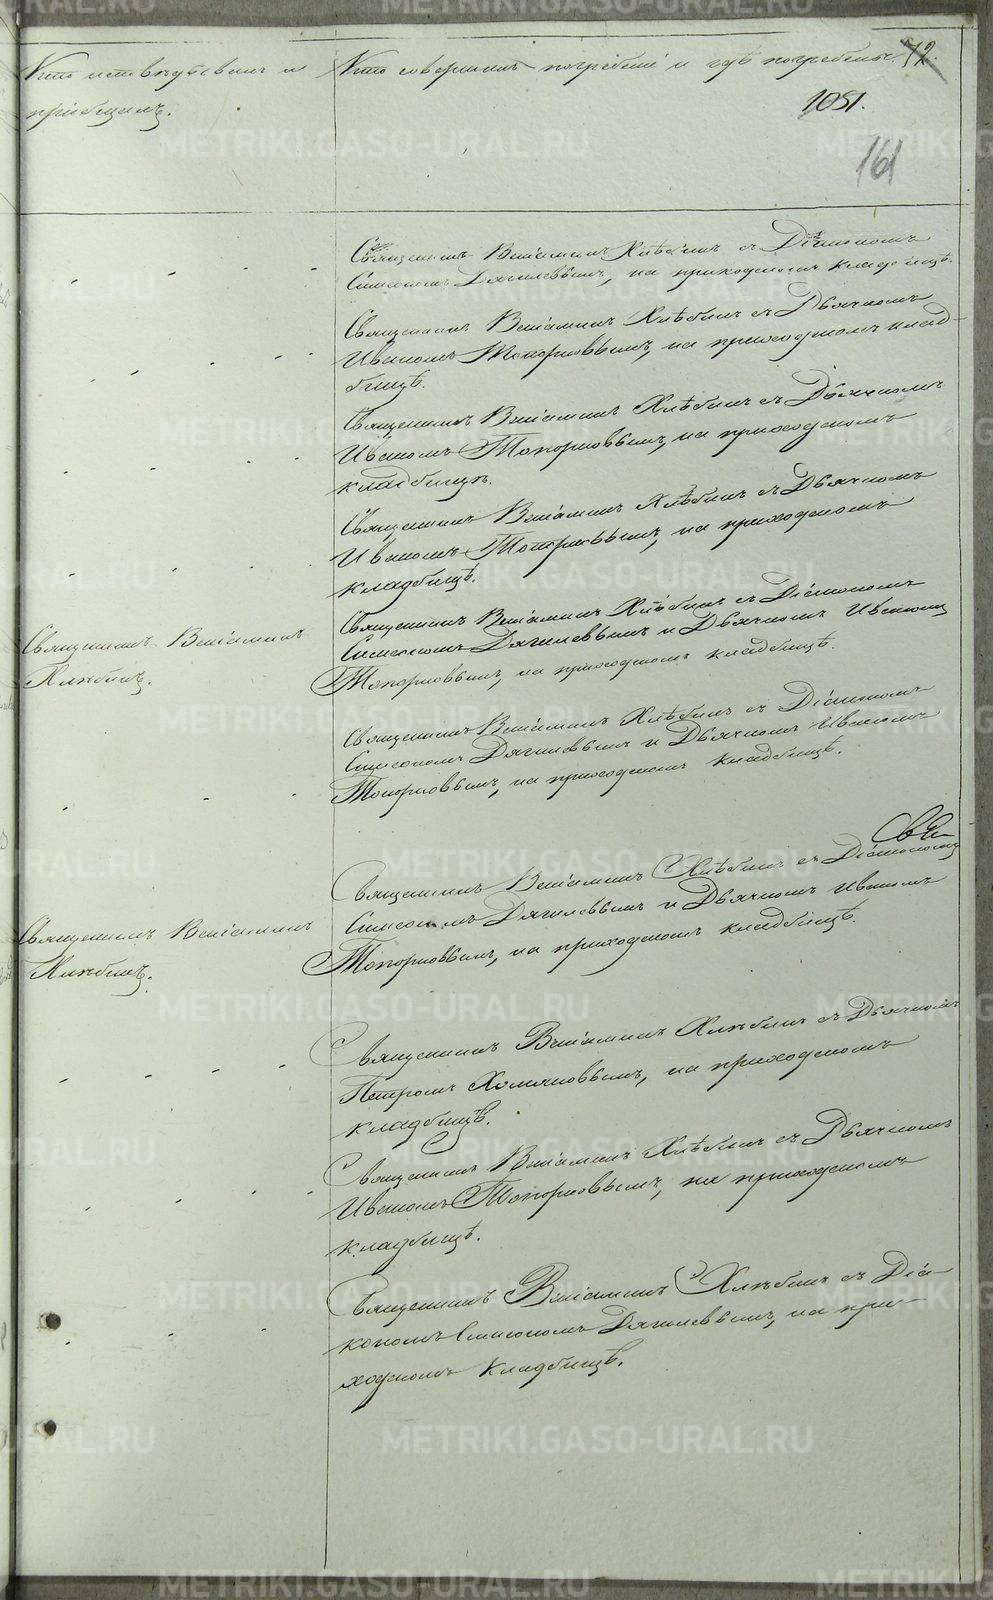 Кто исповѣдывалъ и
пріобщалъ.
Кто совершилъ погребеніе и гдѣ погребены.
72.
1051.
161
Священникъ Веніаминъ Хлѣбинъ съ Діакономъ
Симеономъ Дягилевымъ, на приходскомъ кладбищѣ.
Священникъ Веніаминъ Хлѣбинъ съ Дьячкомъ
Иваномъ Топорковымъ, на приходскомъ клад-
бищѣ.
Священникъ Веніаминъ Хлѣбинъ съ Дьячкомъ
Иваномъ Топорковымъ, на приходскомъ
кладбищѣ.
Священникъ Веніаминъ Хлѣбинъ съ Дьячкомъ
Иваномъ Топорковымъ, на приходскомъ
кладбищѣ.
Священникъ Веніаминъ
Хлѣбинъ.
Священникъ Веніаминъ Хлѣбинъ съ Діакономъ
Симеономъ Дягилевымъ и Дьячкомъ Иваномъ
Топорковымъ, на приходскомъ кладбищѣ.
Священникъ Веніаминъ Хлѣбинъ съ Діакономъ
Симеономъ Дягилевымъ и Дьячкомъ Иваномъ
Топорковымъ, на приходскомъ кладбищѣ.
Священникъ Веніаминъ
Хлѣбинъ.
Священникъ Веніаминъ Хлѣбинъ съ Діакономъ
Симеономъ Дягилевымъ и Дьячкомъ Иваномъ
Топорковымъ, на приходскомъ кладбищѣ.
Священникъ Веніаминъ Хлѣбинъ съ Дьячкомъ
Петромъ Хомяковымъ, на приходскомъ
кладбищѣ.
Священникъ Веніаминъ Хлѣбинъ съ Дьячкомъ
Иваномъ Топорковымъ, на приходскомъ
кладбищѣ.
Священникъ Веніаминъ Хлѣбинъ съ Діа-
кономъ Симеономъ Дягилевымъ, на при-
ходскомъ кладбищѣ.
METRIKI.GASO-URAL.RU